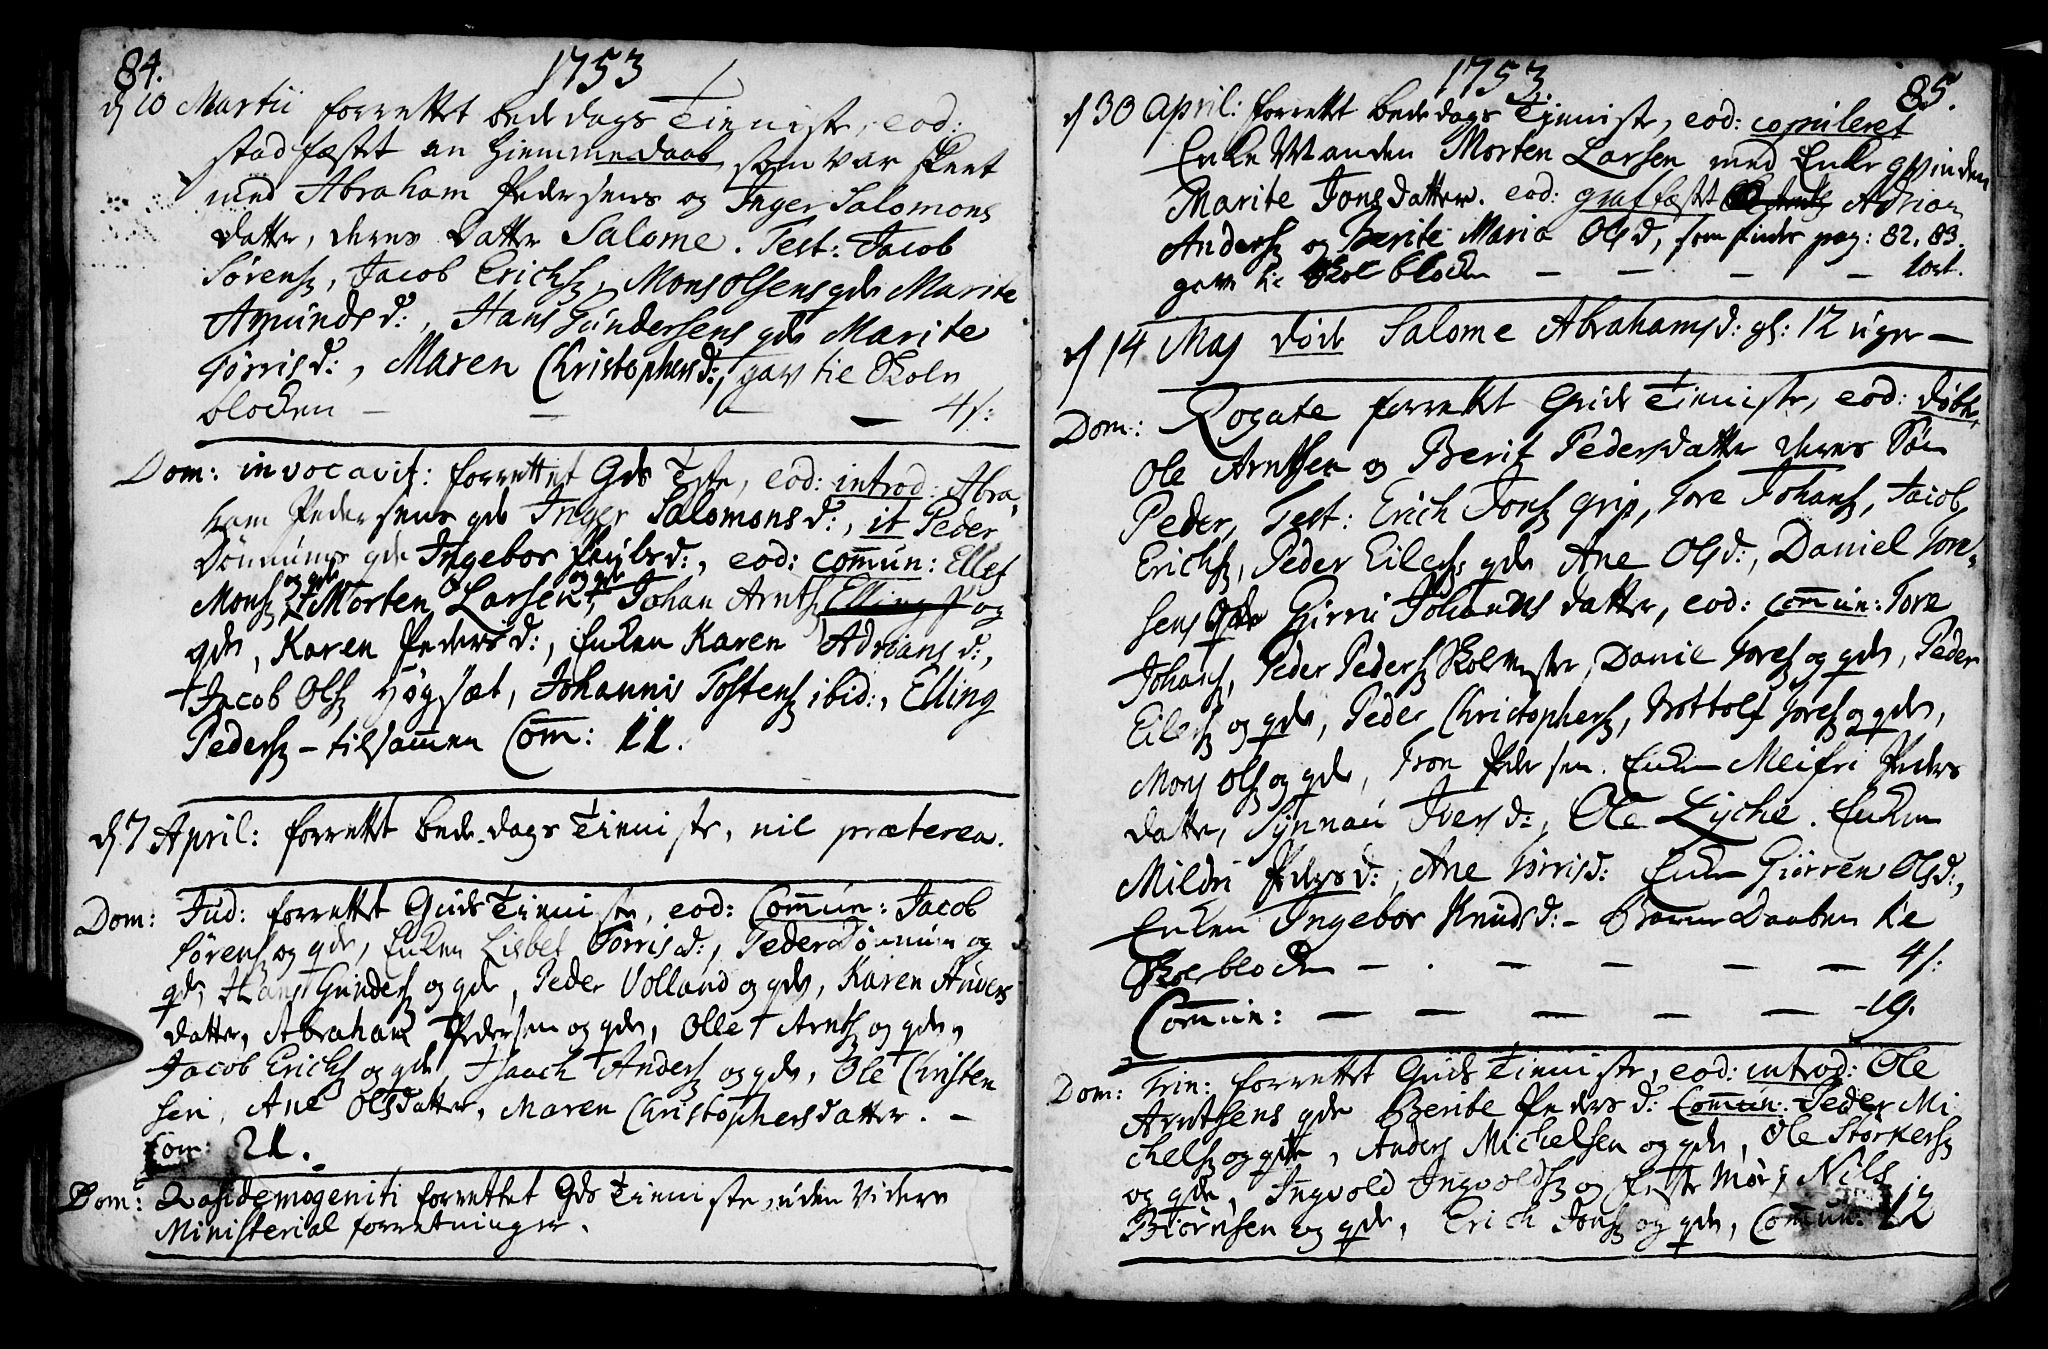 84. 1753
d 10 Martii forrettet bededags Tieniste, eod:
stadfæstet en Hiemmedaab som var skeet
med Abraham Pedersens og Inger Salomons
datter, deres datter Salome. Test: Jacob
Sørens, Jacob Erichs, Mons Olsens qde Marite
Amunds d:, Hans Gundersens qde Marite
Torris d:, Maren Christophers d:, gav til Skole
blocken – – – – 4 s:
Dom: invocavit: forrettet Gds Tste, eod: introd: Abra,
ham Pedersens qde Inger Salomons d:, it Peder
Dønnums qde Ingebor d:, eod: commun: Ellef
Mons og qde, + Morten Larsen og qde +, Johan Arnts Elling P og
qde, Karen Peders d:, Enken Karen Adrians d:,
+ Jacob Ols Høgsæt, Johannis Tostens ibid:, Elling
Peders – tilsammen Com: 11.
d 7 April: forrettet bede-dags Tieniste, nil præterea.
Dom: Jud: forrettet Guds Tieniste, eod: Commun: Jacob
Sørens og qde, Enken Lisbet Torris d:, Peder Dønnum og
qde, Hans Gunders og qde, Peder Volland og qde, Karen Anders
datter, Abraham Pedersen og qde, Olle + Arnts og qde,
Jacob Erichs og qde, Isaach Anders og qde, Ole Christen
sen, Ane Olsdatter, Maren Christophersdatter. –
Com: 21.
Dom: Qvasidemogeniti forrettet Gds Tieniste, uden videre
Ministerial forretninger.
1753. 85.
d 30 April: forrettet bededags Tieniste, eod: copuleret
Enke Manden Morten Larsen med Enke qvinden
Marite Jonsdatter. eod: graffæstet Adrian
Anders og Berite Maria Ols d, som findes pag: 82. 83.
gave til Skole blocken – – – – 1 ort.
d 14 Maj døde Salome Abrahams d: gl: 12 uger –
Dom: Rogate forrettet Guds Tieniste, eod: døbt,
Ole Arntsen og Berit Pedersdatter deres Søn
Peder, Test: Erich Jons Grip, Tore Johans, Jacob
Erichs, Peder Eilers qde Ane Ols d:, Daniel Tore,
sens qde Girri Johannsdatter, eod: commun: Tore
Johans, Peder Peders Skolemester, Daniel Tores og qde, Peder
Eilers og qde, Peder Christophers, Bottolf Tores og qde,
Mons Ols og qde, Tron Pedersen. Enken Meifri Peders
datter, Synnau Ivers d:, Ole Lyche. Enken
Mildri Peders d:, Ane Torris d: Enken Giørren Ols d:,
Enken Ingebor Knuds d: – Barne Daaben til
Skoleblocken – – – – – 4 s:
Commun: – – – – – 19.
Dom: Trin: forrettet Guds Tieniste, eod: introd: Ole
Arntsens qde Berite Peders d: Commun: Peder Mi
chels og qde, Anders Michelsen og qde, Ole Størkers
og qde, Ingvold Ingvolds og feste Møe, Nils
Biørnsen og qde, Erich Jons og qde, Commun: 12